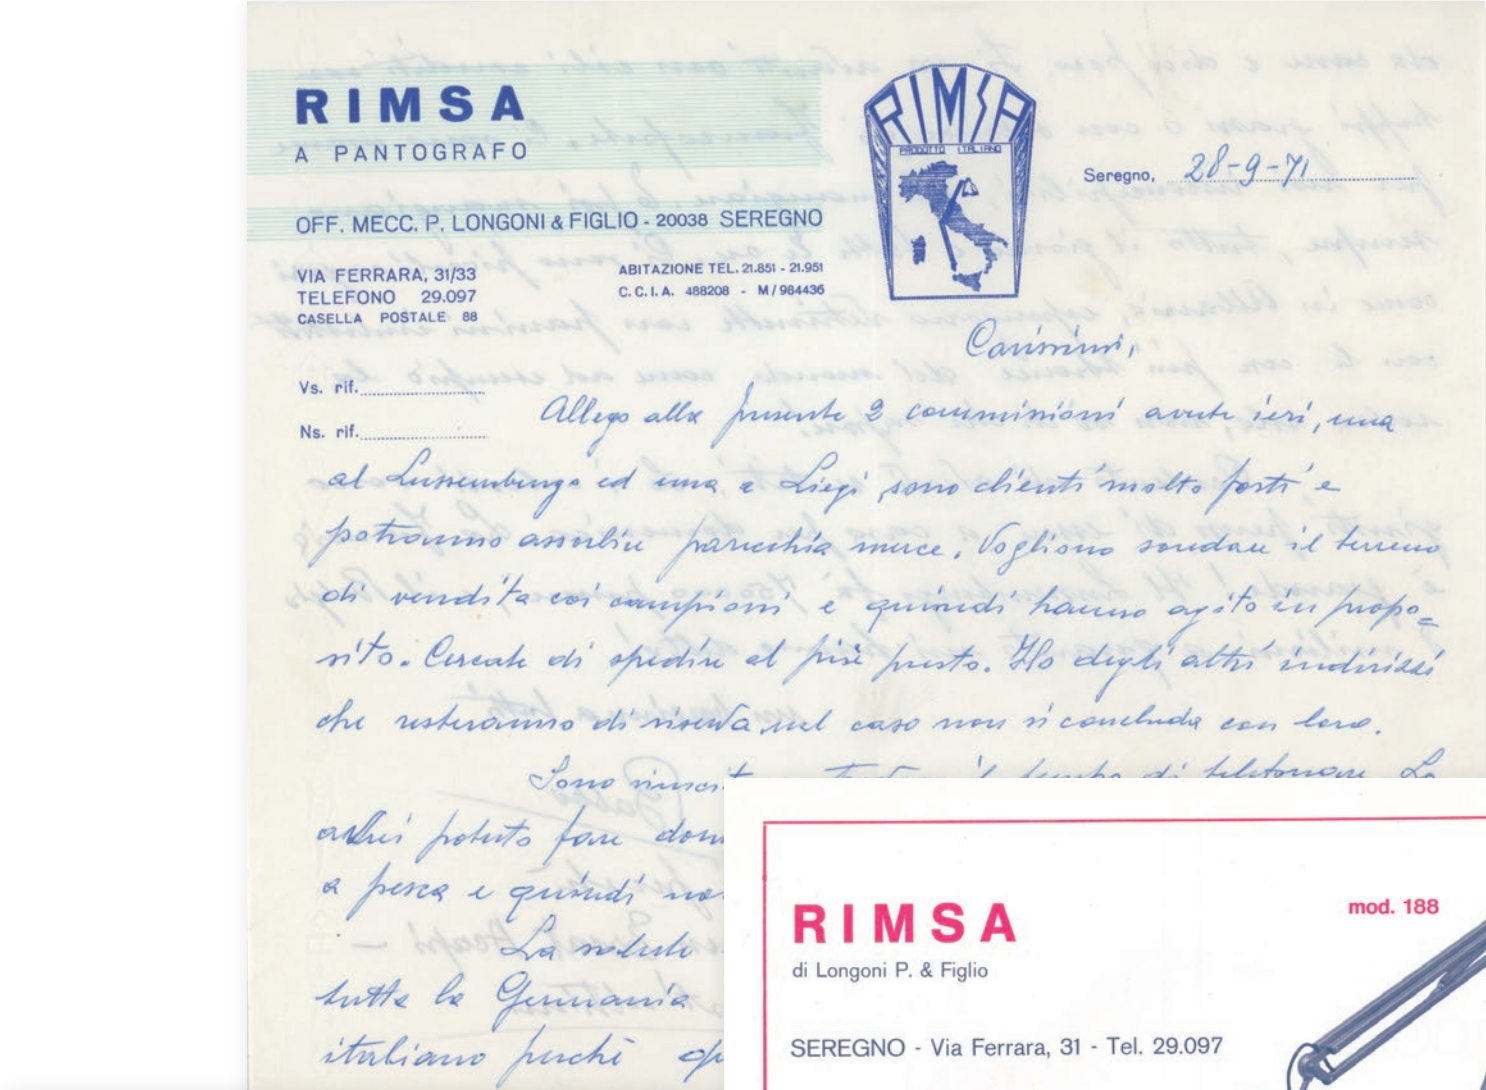 RIMSA
A PANTOGRAFO
OFF. MECC. P. LONGONI & FIGLIO - 20038 SEREGNO
VIA FERRARA, 31/33
TELEFONO 29.097
CASELLA POSTALE 88
ABITAZIONE TEL. 21.851 - 21.951
C.C.I.A. 488208 - M/984436
RIMSA
PRODOTTO ITALIANO
Seregno, 28-9-71
Vs. rif.
Ns. rif.
Carissimi,
Allego alla presente 2 commissioni avute ieri, una
al Lussemburgo ed una a Liegi, sono clienti molto forti e
potranno assorbire parecchia merce. Vogliono sondare il terreno
di vendita coi campioni e quindi hanno agito in propo=
sito. Cercate di spedire al più presto. Ho degli altri indirizzi
che resteranno di riserva nel caso non si concluda con loro.
Sono il tempo di telefonare. Lo
avrei potuto fare
a pesca e quindi
La salute
tutta la Germania
italiano perchè
RIMSA
di Longoni P. & Figlio
mod. 188
SEREGNO - Via Ferrara, 31 - Tel. 29.097